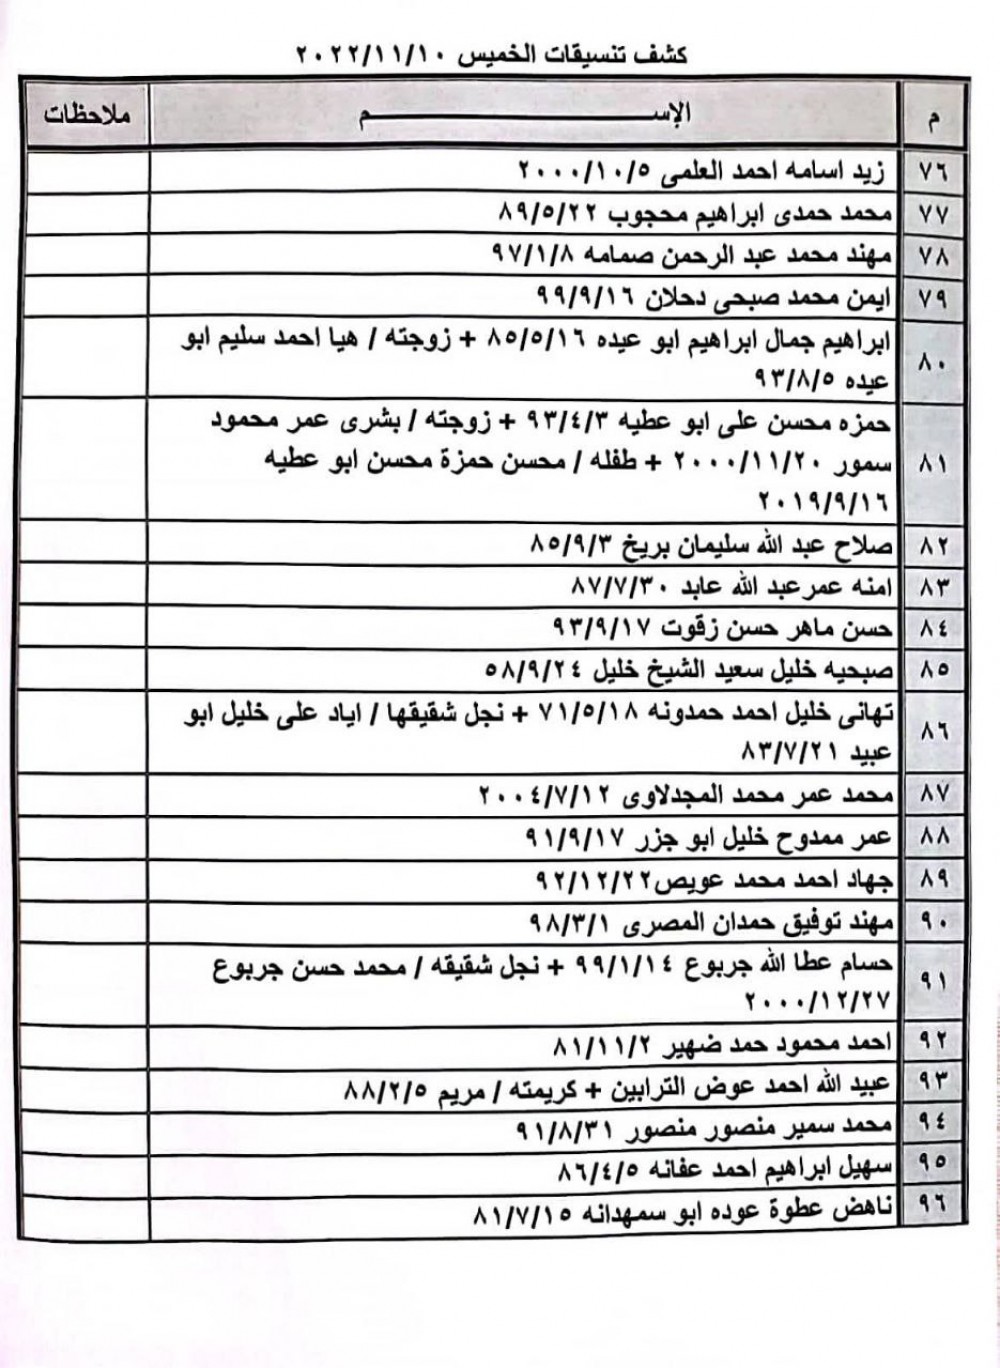 كشف تنسيقات الخميس ٢٠٢٢/١١/١٠
م الإســـــــــــــــــــــم ملاحظات
٧٦ زيد اسامه احمد العلمى ٢٠٠٠/١٠/٥
٧٧ محمد حمدى ابراهيم محجوب ٨٩/٥/٢٢
٧٨ مهند محمد عبد الرحمن صمامه ٩٧/١/٨
٧٩ ايمن محمد صبحى دحلان ٩٩/٩/١٦
٨٠ ابراهيم جمال ابراهيم ابو عيده ٨٥/٥/١٦ + زوجته / هيا احمد سليم ابو
عيده ٩٣/٨/٥
٨١ حمزه محسن على ابو عطيه ٩٣/٤/٣ + زوجته / بشرى عمر محمود
سمور ٢٠٠٠/١١/٢٠ + طفله / محسن حمزة محسن ابو عطيه
٢٠١٩/٩/١٦
٨٢ صلاح عبد الله سليمان بريخ ٨٥/٩/٣
٨٣ امنه عمرعبد الله عابد ٨٧/٧/٣٠
٨٤ حسن ماهر حسن زقوت ٩٣/٩/١٧
٨٥ صبحيه خليل سعيد الشيخ خليل ٥٨/٩/٢٤
٨٦ تهانى خليل احمد حمدونه ٧١/٥/١٨ + نجل شقيقها / اياد على خليل ابو
عبيد ٨٣/٧/٢١
٨٧ محمد عمر محمد المجدلاوى ٢٠٠٤/٧/١٢
٨٨ عمر ممدوح خليل ابو جزر ٩١/٩/١٧
٨٩ جهاد احمد محمد عويص٩٢/١٢/٢٢
٩٠ مهند توفيق حمدان المصرى ٩٨/٣/١
٩١ حسام عطا الله جربوع ٩٩/١/١٤ + نجل شقيقه / محمد حسن جربوع
٢٠٠٠/١٢/٢٧
٩٢ احمد محمود حمد ضهير ٨١/١١/٢
٩٣ عبيد الله احمد عوض الترابين + كريمته / مريم ٨٨/٢/٥
٩٤ محمد سمير منصور منصور ٩١/٨/٣١
٩٥ سهيل ابراهيم احمد عفانه ٨٦/٤/٥
٩٦ ناهض عطوة عوده ابو سمهدانه ٨١/٧/١٥